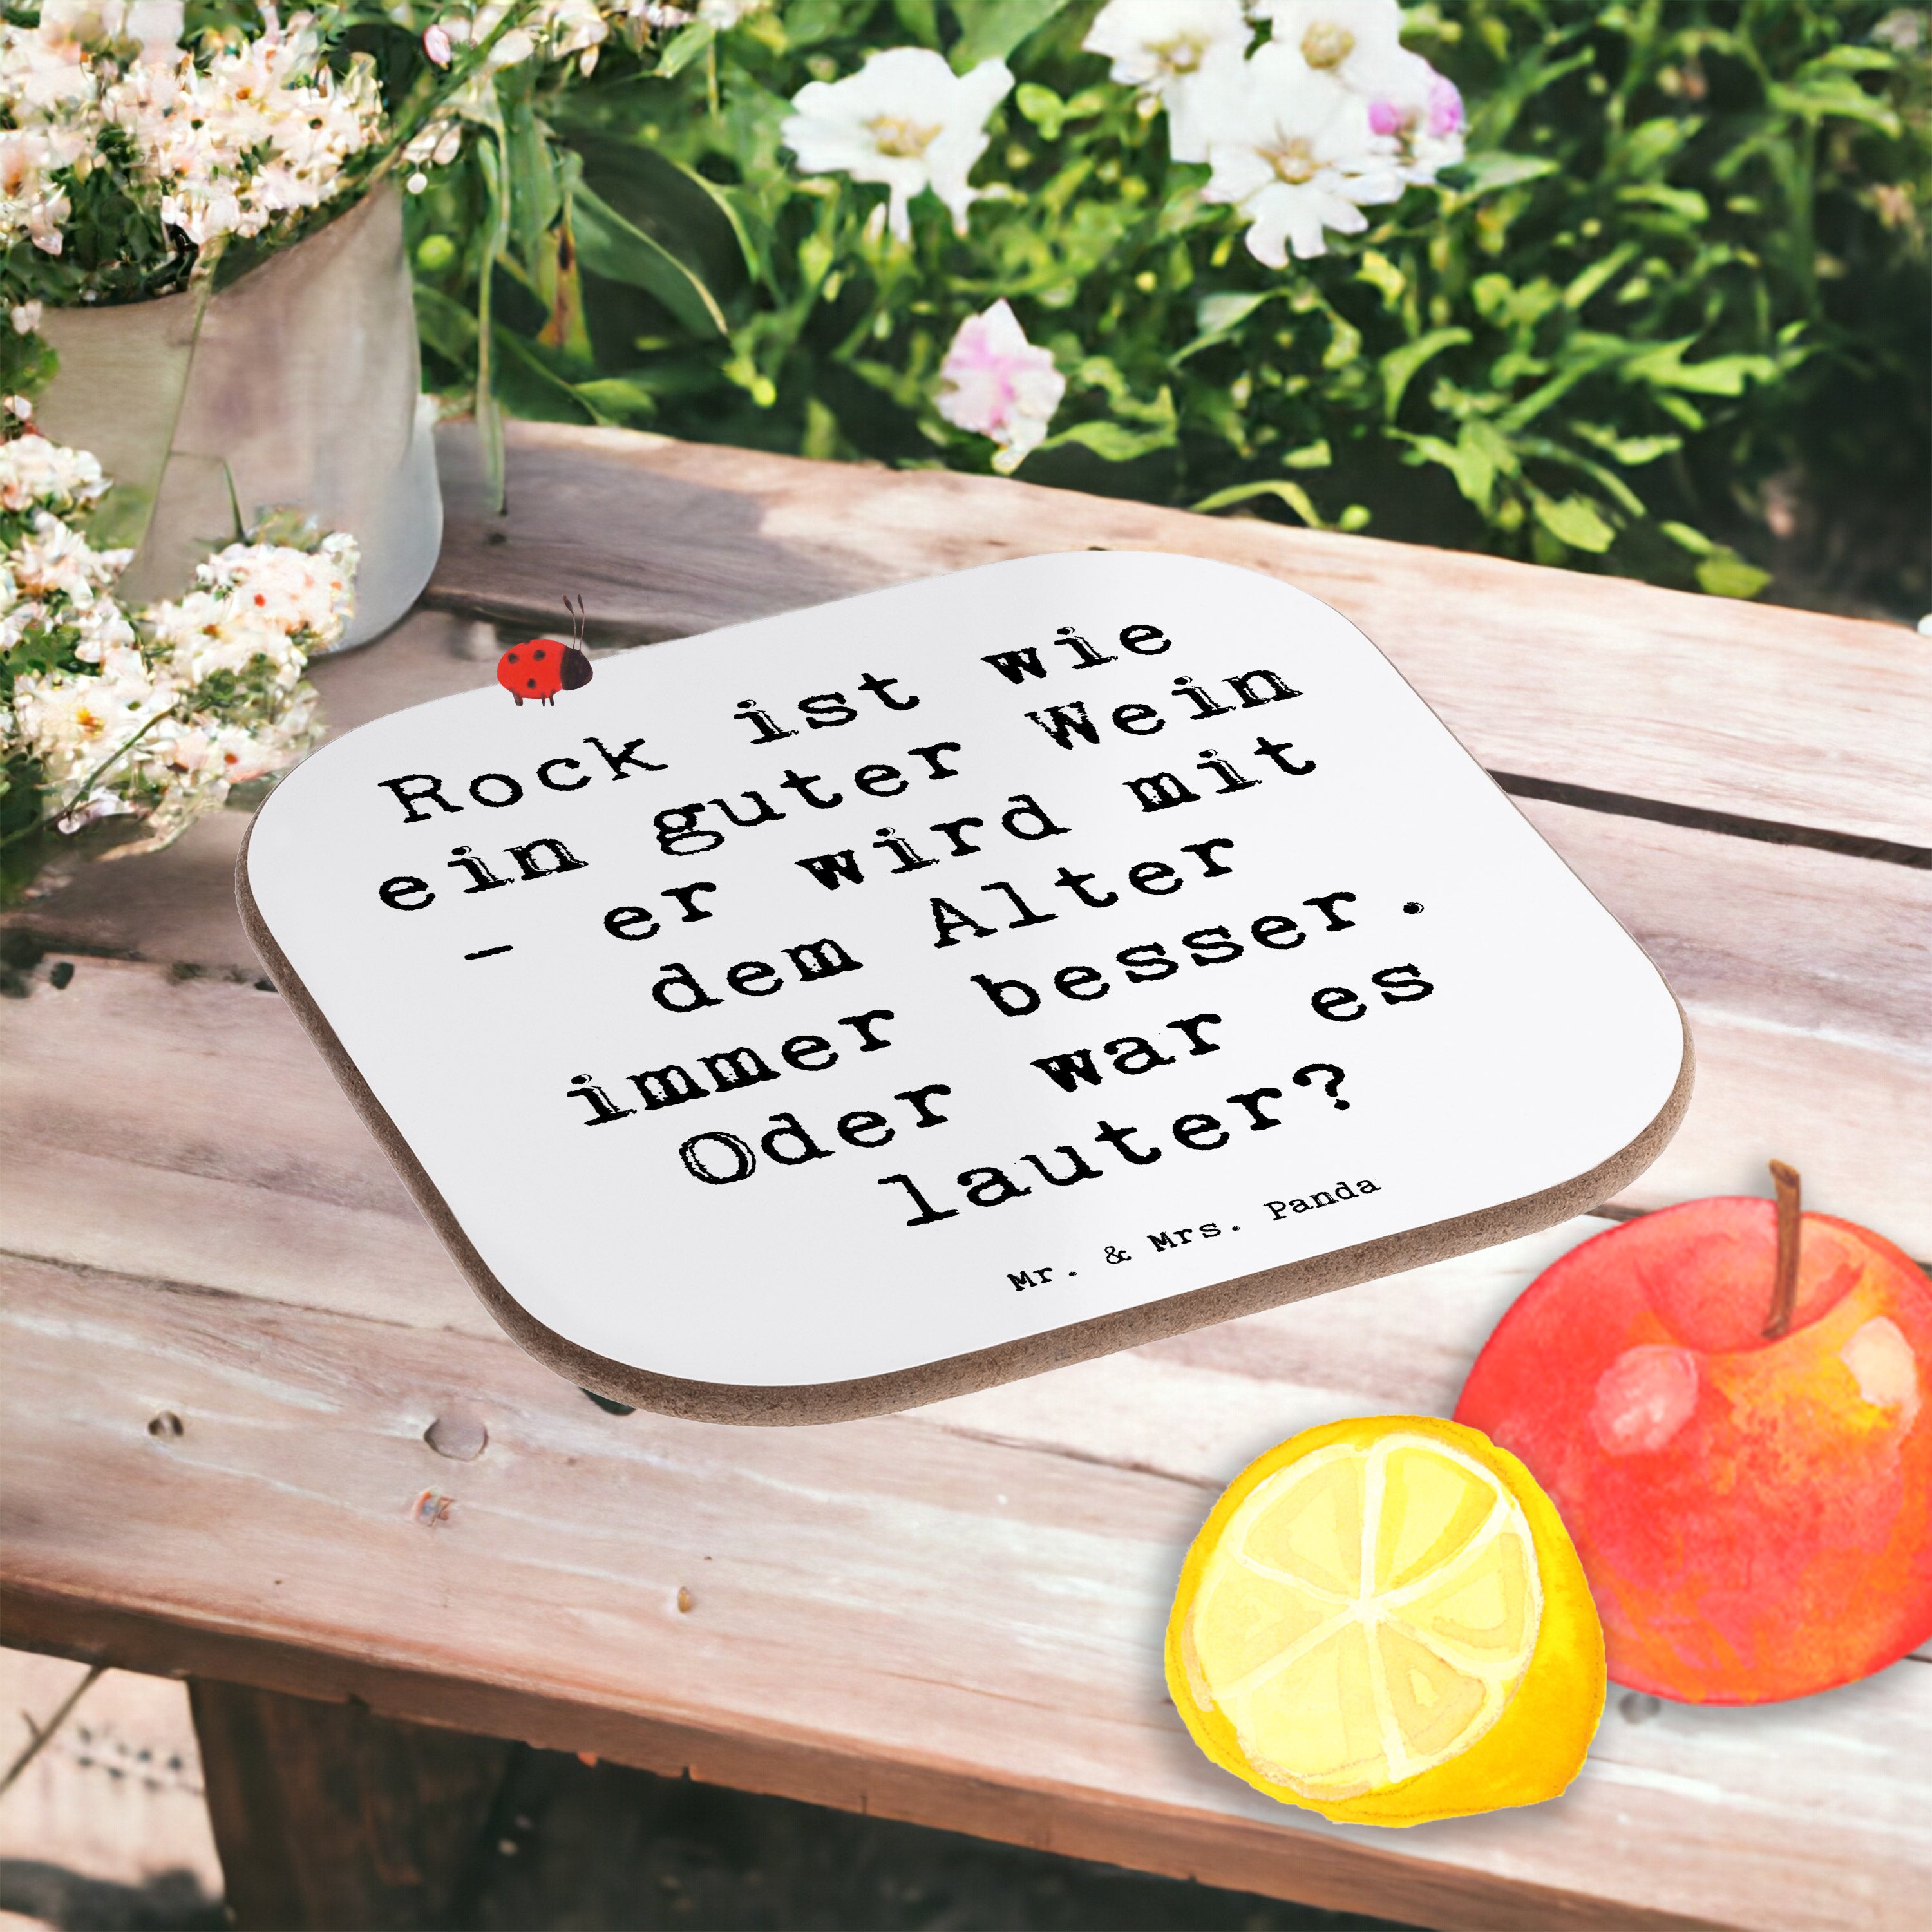 Rock ist wie
ein guter Wein
- er wird mit
dem Alter
immer besser.
Oder war es
lauter?
Mr. & Mrs. Panda